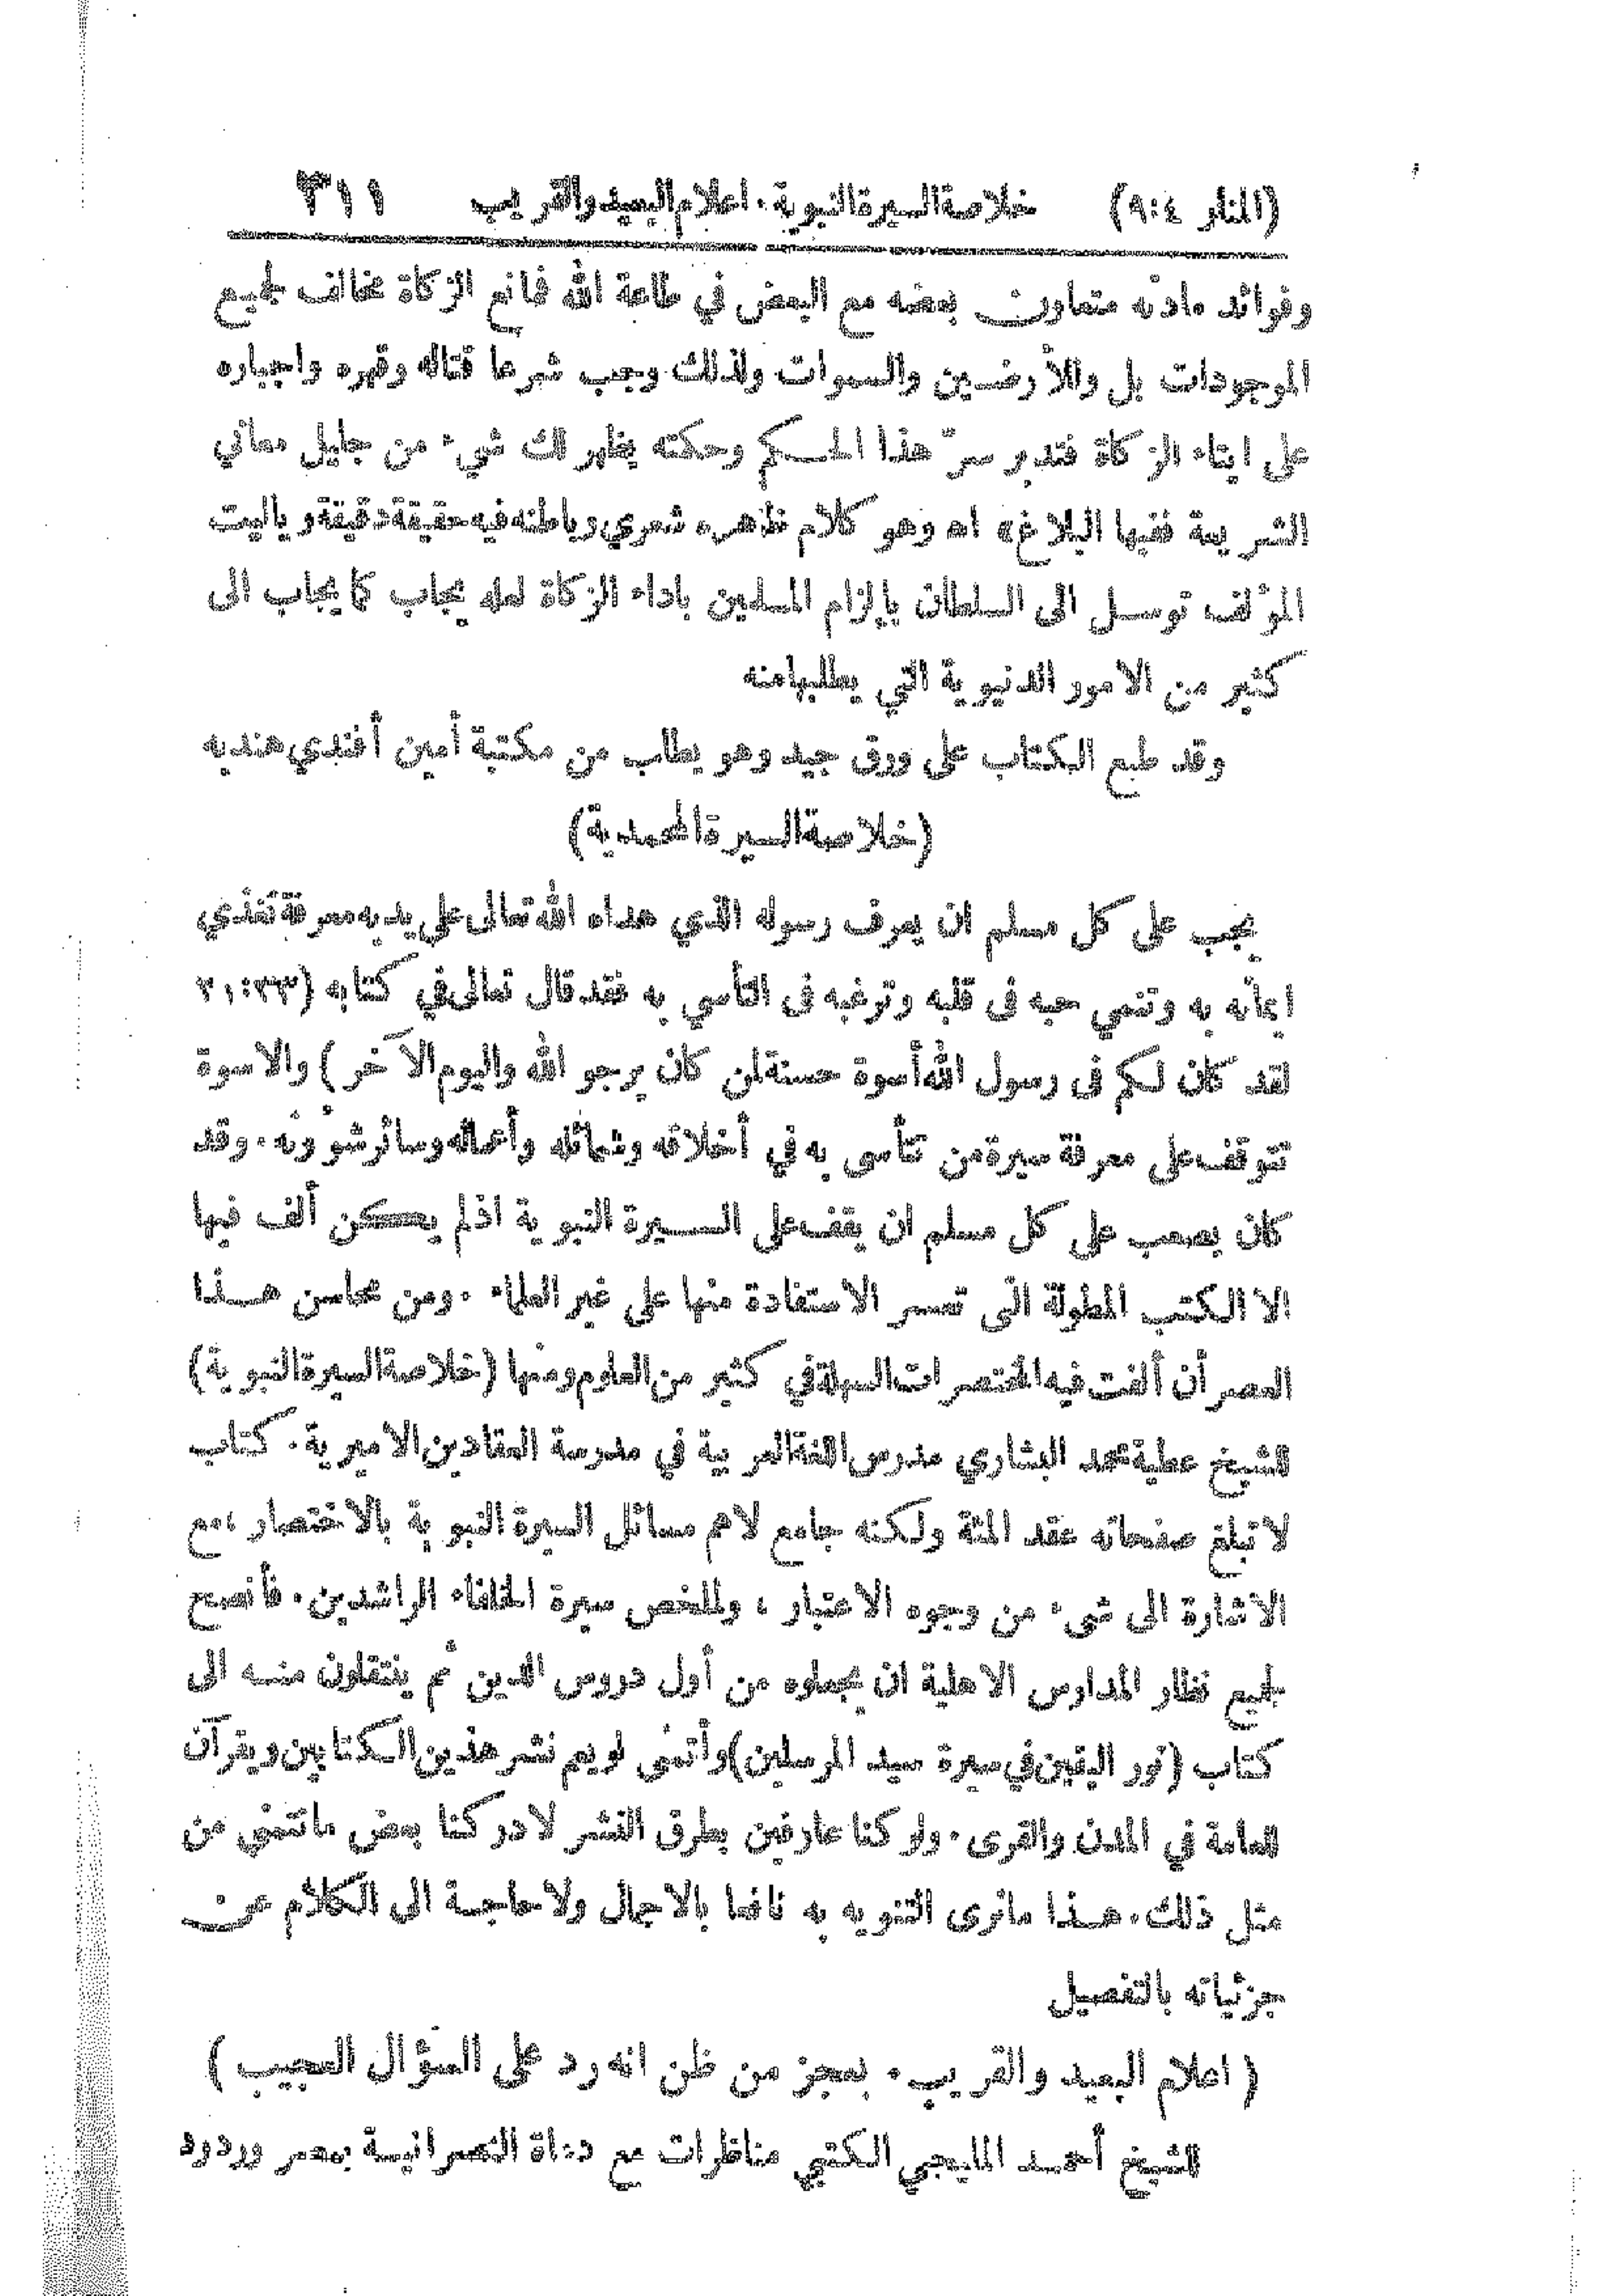 (المنار ٤:٩) خلاصة السيرة النبوية. اعلام البعيد والقريب ٣١١
وفوائد مادته متعاون بعضه مع البعض في طاعة الله فمانع الزكاة مخالف لجميع
الموجودات بل وللأرضين والسموات ولذلك وجب شرعا قتاله وقهره واجباره
على ايتاء الزكاة فتدبر سرّ هذا الحكم وحكمته يظهر لك شيء من جليل معاني
الشريعة ففيها البلاغ» اه وهو كلام ظاهره شعري وباطنه فيه حقيقة دقيقة وياليت
المؤلف توسل الى السلطان بإلزام المسلمين باداء الزكاة لعله يجاب كما يجاب الى
كثير من الامور الدنيوية التي يطلبها منه
وقد طبع الكتاب على ورق جيد وهو يطلب من مكتبة أمين أفندي هنديه
(خلاصة السيرة المحمدية)
يجب على كل مسلم ان يعرف رسوله الذي هداه الله تعالى على يديه معرفة تغذي
ايمانه به وتنمي حبه فى قلبه وترغبه فى التأسي به فقد قال تعالى في كتابه (٢١:٣٣
لقد كان لكم فى رسول الله أسوة حسنة لمن كان يرجو الله واليوم الآخر) والاسوة
تتوقف على معرفة سيرة من تتأسى به في أخلاقه وشمائله وأعماله وسائر شؤونه. وقد
كان يصعب على كل مسلم ان يقف على السيرة النبوية اذ لم يكن ألف فيها
الا الكتب المطولة التى تعسر الاستفادة منها على غير العلماء. ومن محاسن هذا
العصر أن ألفت فيه المختصرات السهلة في كثير من العلوم ومنها (خلاصة السيرة النبوية)
للشيخ عطية محمد البشاري مدرس اللغة العربية في مدرسة العقادين الاميرية. كتاب
لا تبلغ صفحاته عقد المئة ولكنه جامع لاهم مسائل السيرة النبوية بالاختصار، مع
الاشارة الى شىء من وجوه الاعتبار، وملخص سيرة الخلفاء الراشدين. فأنصح
لجميع نظار المدارس الاهلية ان يجعلوه من أول دروس الدين ثم ينتقلون منه الى
كتاب (نور اليقين في سيرة سيد المرسلين) وأتمنى لو يعم نشر هذين الكتابين ويقرآن
للعامة في المدن والقرى. ولو كنا عارفين بطرق النشر لادركنا بعض ما نتمنى من
مثل ذلك. هذا ما نرى التنويه به نافعا بالاجمال ولا حاجة الى الكلام عن
جزئياته بالتفصيل
( اعلام البعيد والقريب. بعجز من ظن انه رد على السؤال العجيب )
للشيخ أحمد المليجي الكتبي مناظرات مع دعاة النصرانية بمصر وردود